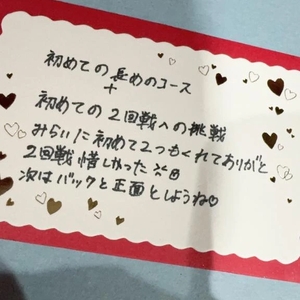 初めての長めのコース
+
初めての2回戦への挑戦
みらいに初めて2つもくれてありがと
2回戦惜しかった
次はバックと正面としようね♡